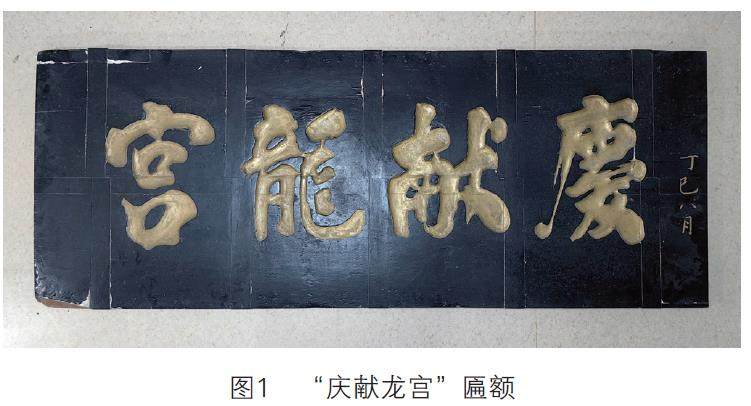 丁巳八月
慶献龍宮
图1 “庆献龙宫”匾额